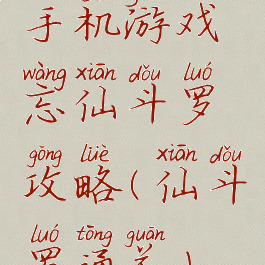 手机游戏
wàng xiān dǒu luó
忘仙斗罗
gōng lüè xiān dǒu
攻略(仙斗
luó tōng guān
罗通关)